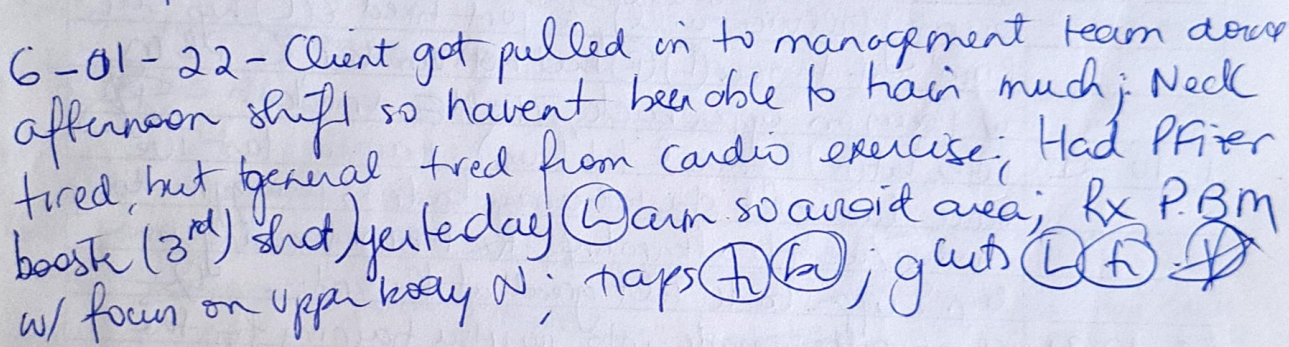 6-01-22- Client got pulled in to management team
afternoon shift so havent been able to train much; Neck
tired, but general tired from cardio exercise; Had Pfizer
booste (3rd) shot yesteday (L) arm so avoid area; Rx P.B.M
w/ focus on upper body N; traps (h) ; gluts (L) (h)